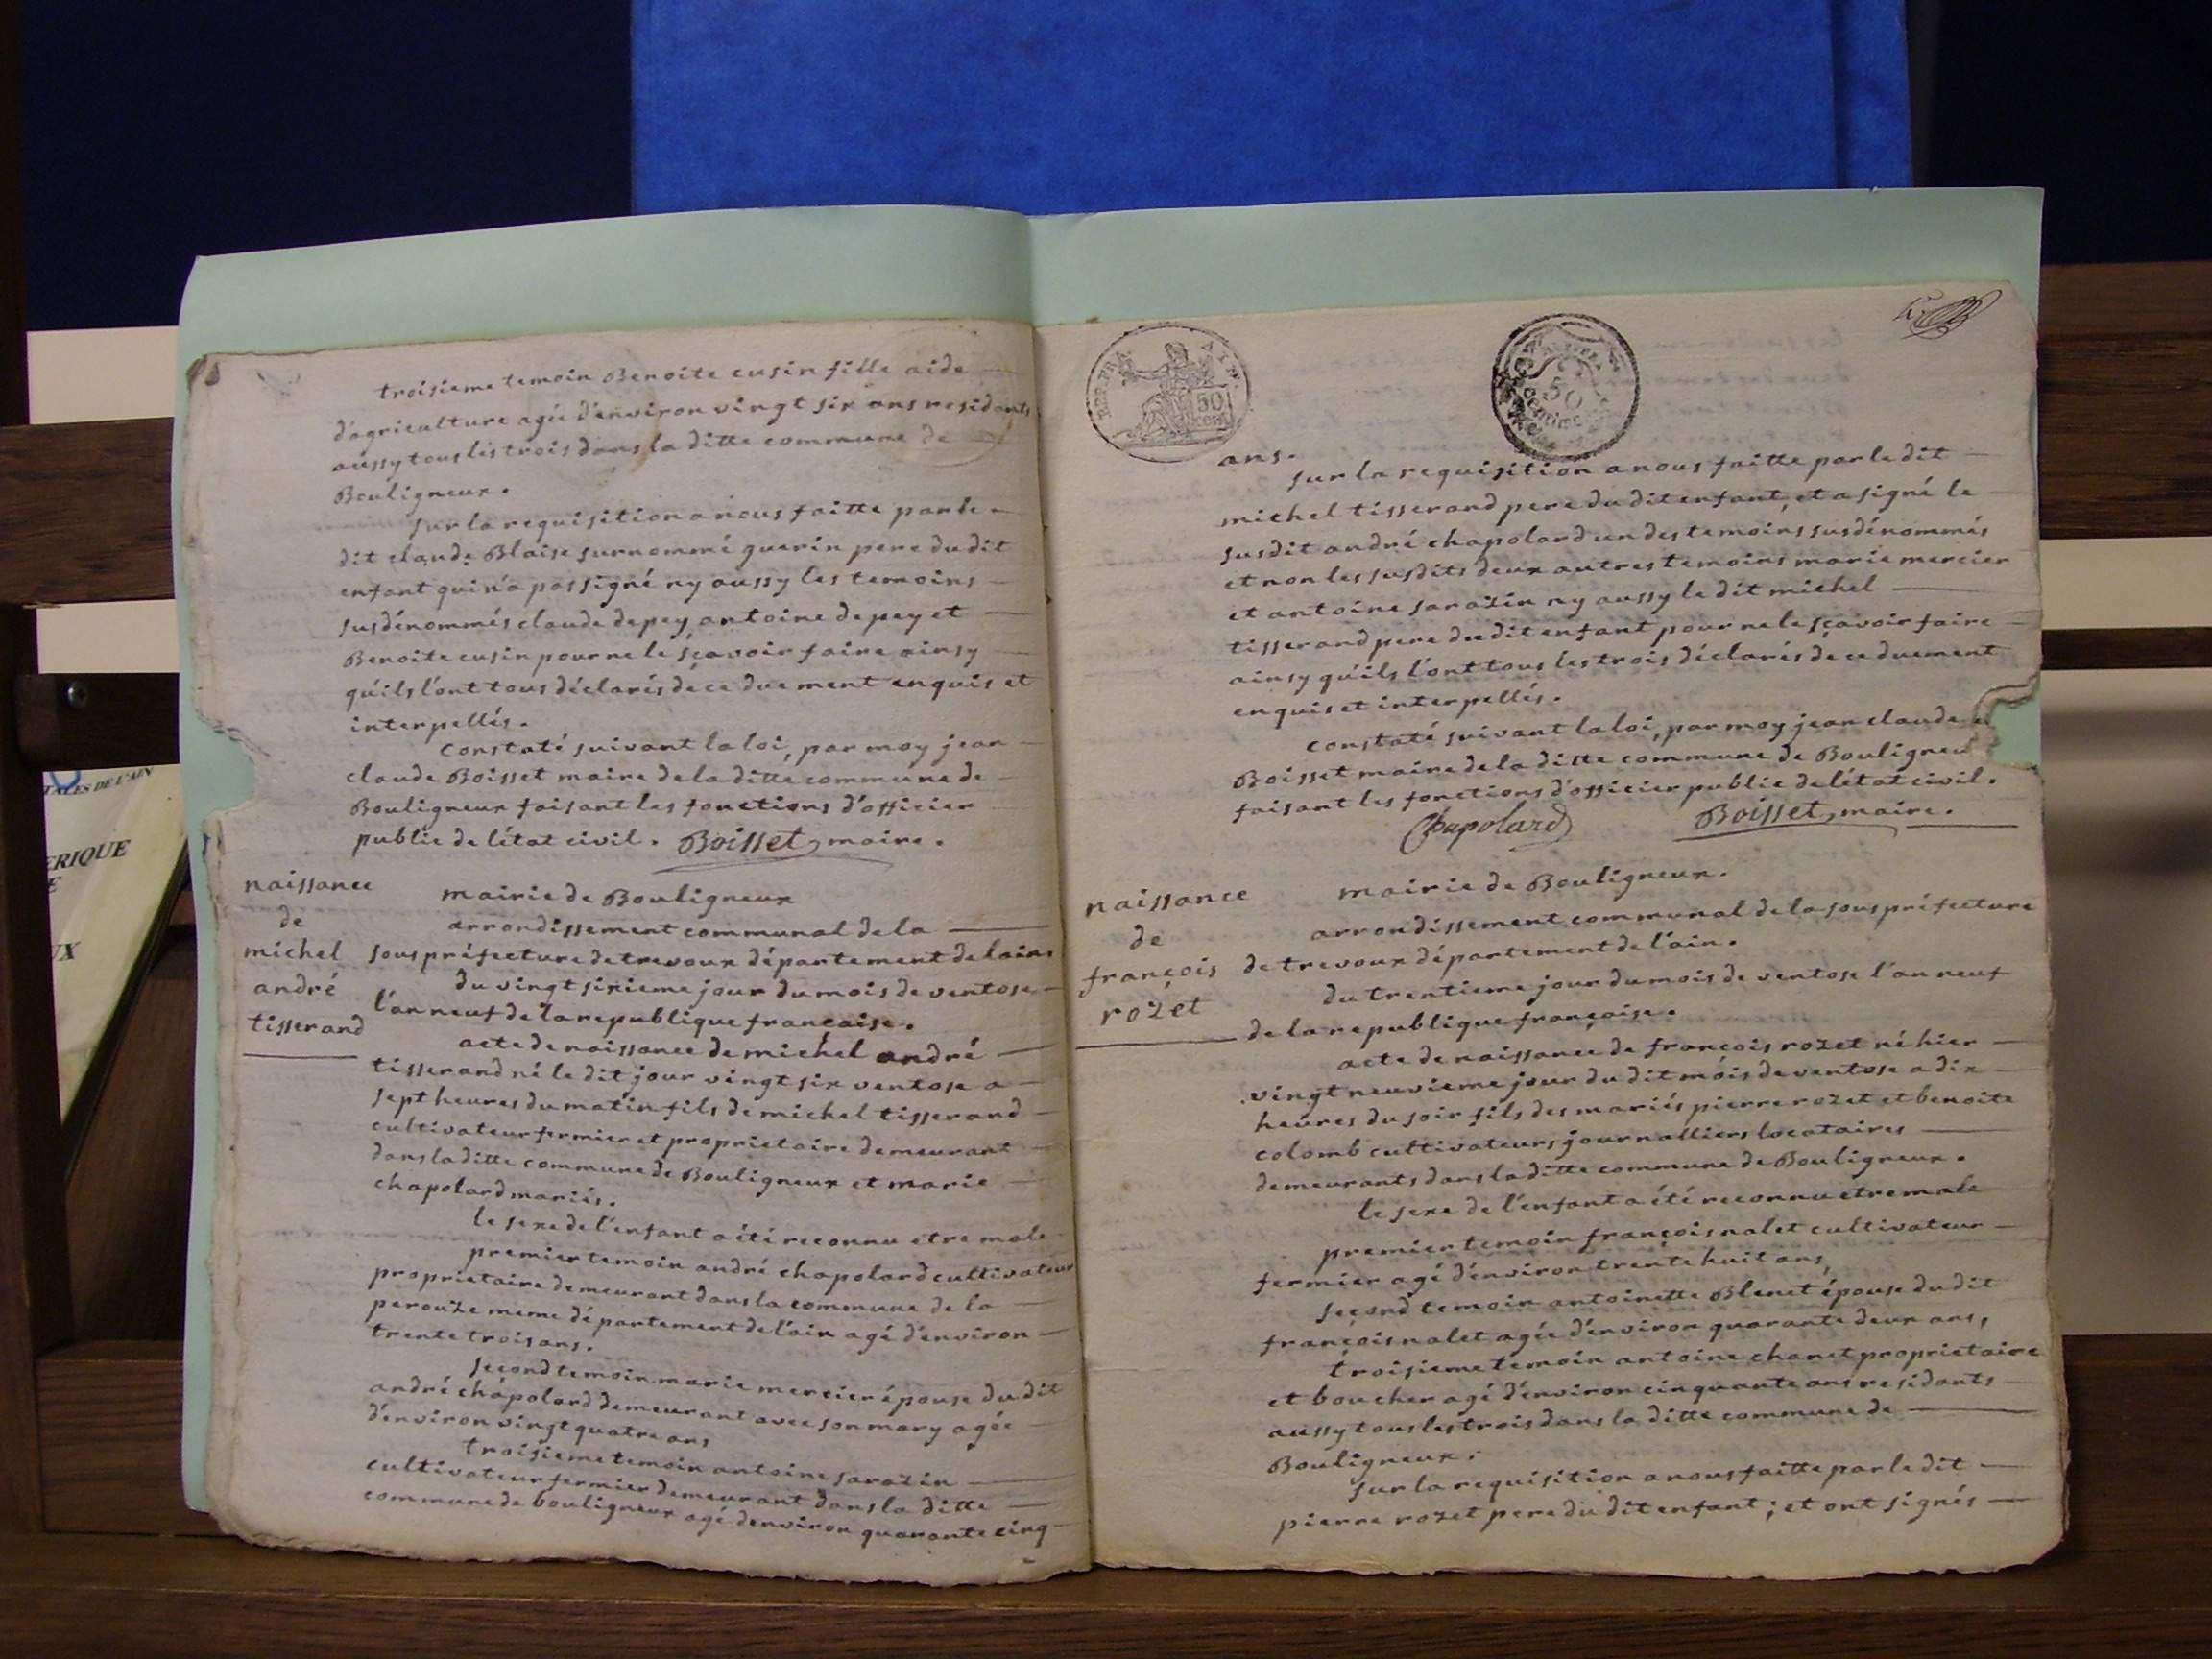 troisieme temoin Benoite cusin fille aide
d'agriculture agée d'environ vingt six ans residants
aussy tous les trois dans la ditte commune de
Bouligneux.
sur la requisition a nous faitte par le
dit claude Blaise surnommé guerin pere du dit
enfant qui n'a pas signé ny aussy les temoins
susdénommés claude depey antoine depey et
Benoite cusin pour ne le sçavoir faire ainsy
qu'ils l'ont tous déclarés de ce duement enquis et
interpellés.
Constaté suivant la loi, par moy jean
claude Boisset maire de la ditte commune de
Bouligneux faisant les fonctions d'officier
public de l'état civil. Boisset, maire.
naissance
de
michel
andré
tisserand
mairie de Bouligneux
arrondissement communal de la
sous préfecture de trevoux département de lain
du vingt sixieme jour du mois de ventose
l'an neuf de la republique française.
acte de naissance de michel andré
tisserand né le dit jour vingt six ventose a
sept heures du matin fils de michel tisserand
cultivateur fermier et proprietaire demeurant
dans la ditte commune de Bouligneux et marie
chapolard mariés.
le sexe de l'enfant a été reconnu etre male
premier temoin andré chapolard cultivateur
proprietaire demeurant dans la commune de la
perouze meme département de l'ain agé d'environ
trente trois ans.
second temoin marie mercier épouse du dit
andré chapolard demeurant avec son mary agée
d'environ vingt quatre ans
troisieme temoin antoine sarazin
cultivateur fermier demeurant dans la ditte
commune de bouligneux agé d'environ quarante cinq
REP. FRA
AIN.
50
cent
50
centime
ans.
sur la requisition a nous faitte par le dit
michel tisserand pere du dit enfant, et a signé le
susdit andré chapolard un des temoins susdénommés
et non les susdits deux autres temoins marie mercier
et antoine sarazin ny aussy le dit michel
tisserand pere du dit enfant pour ne le sçavoir faire
ainsy qu'ils l'ont tous les trois déclarés de ce duement
enquis et interpellés.
constaté suivant la loi, par moy jean claude
Boisset maire de la ditte commune de Bouligneu
faisant les fonctions d'officier public de l'état civil.
Chapolard Boisset, maire.
naissance
de
françois
rozet
mairie de Bouligneux.
arrondissement communal de la sous préfecture
de trevoux département de l'ain.
du trentieme jour du mois de ventose l'an neuf
de la republique française.
acte de naissance de françois rozet né hier
vingt neuvieme jour du dit mois de ventose a dix
heures du soir fils des mariés pierre rozet et benoite
colomb cultivateurs journalliers locataires
demeurants dans la ditte commune de Bouligneux.
le sexe de l'enfant a été reconnu etre male
premier temoin françois nalet cultivateur
fermier agé d'environ trente huit ans,
second temoin antoinette Blenet épouse du dit
françois nalet agée d'environ quarante deux ans,
troisieme temoin antoine chanet proprietaire
et boucher agé d'environ cinquante ans residants
aussy tous les trois dans la ditte commune de
Bouligneux.
sur la requisition a nous faitte par le dit
pierre rozet pere du dit enfant; et ont signés
ERIQUE